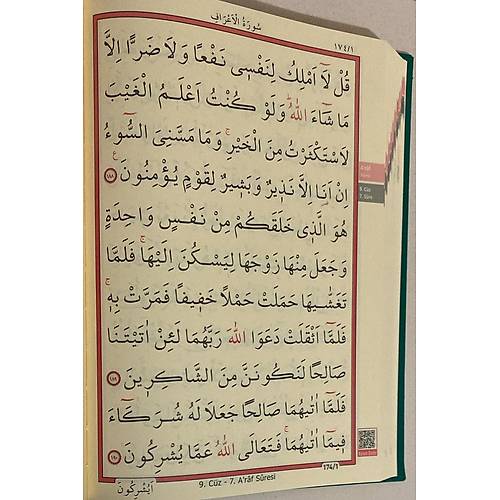 سُورَةُ الْاَعْرَافِ
١٧٤/١
قُلْ لَٓا اَمْلِكُ لِنَفْسٖي نَفْعًا وَلَا ضَرًّا اِلَّا
مَا شَٓاءَ اللّٰهُ وَلَوْ كُنْتُ اَعْلَمُ الْغَيْبَ
لَاسْتَكْثَرْتُ مِنَ الْخَيْرِ وَمَا مَسَّنِيَ السُّٓوءُ
اِنْ اَنَا اِلَّا نَذٖيرٌ وَبَشٖيرٌ لِقَوْمٍ يُؤْمِنُونَ ١٨٨
هُوَ الَّذٖي خَلَقَكُمْ مِنْ نَفْسٍ وَاحِدَةٍ
وَجَعَلَ مِنْهَا زَوْجَهَا لِيَسْكُنَ اِلَيْهَا فَلَمَّا
تَغَشّٰيهَا حَمَلَتْ حَمْلًا خَفٖيفًا فَمَرَّتْ بِهٖ
فَلَمَّٓا اَثْقَلَتْ دَعَوَا اللّٰهَ رَبَّهُمَا لَئِنْ اٰتَيْتَنَا
صَالِحًا لَنَكُونَنَّ مِنَ الشَّاكِرٖينَ ١٨٩
فَلَمَّٓا اٰتٰيهُمَا صَالِحًا جَعَلَا لَهُ شُرَكَٓاءَ
فٖيمَٓا اٰتٰيهُمَا فَتَعَالَى اللّٰهُ عَمَّا يُشْرِكُونَ ١٩٠
اَيُشْرِكُونَ
9. Cüz - 7. A'râf Sûresi
174/1
A'râf
9. Cüz
7. Sûre